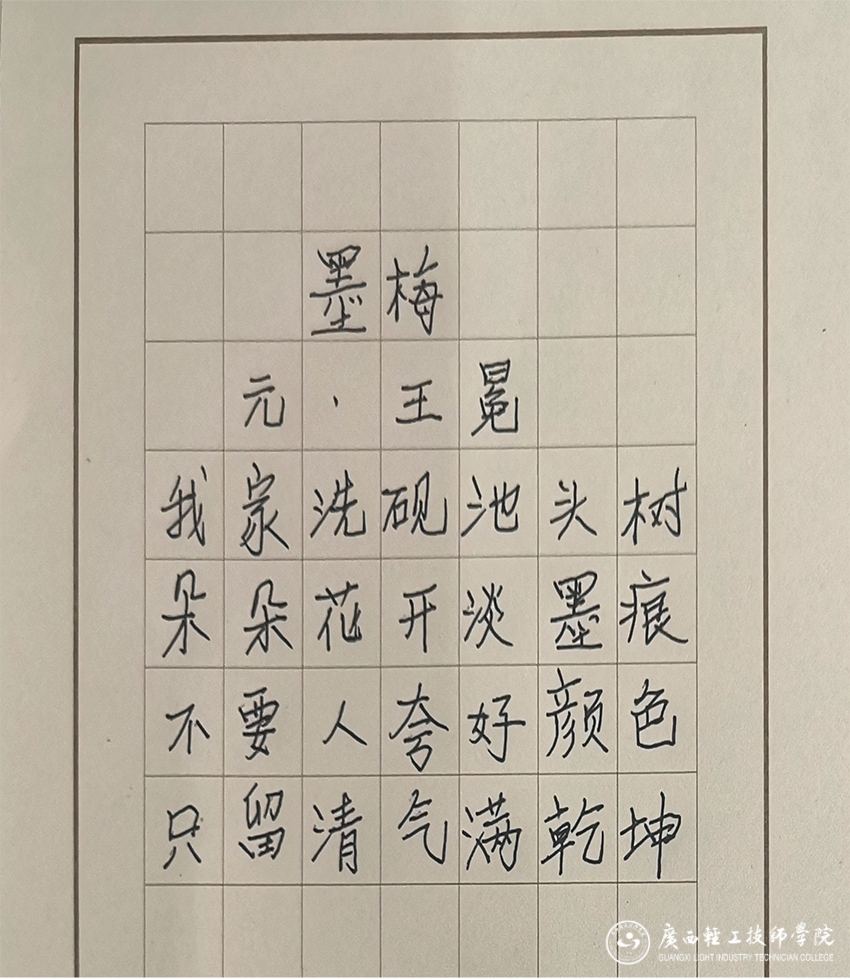 墨梅
元·王冕
我家洗砚池头树
朵朵花开淡墨痕
不要人夸好颜色
只留清气满乾坤
廣西輕工技師學院
GUANGXI LIGHT INDUSTRY TECHNICIAN COLLEGE